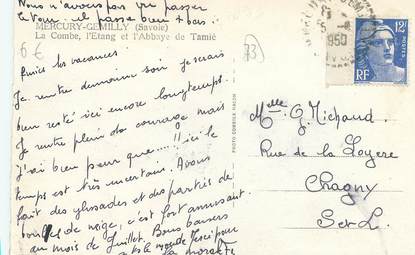 Nous n'avons pas vu passer
le Tour. il passe bien + bas.
MERCURY-GEMILLY (Savoie)
La Combe, l'Etang et l'Abbaye de Tamié
6 €
73
Finies les vacances.
Je rentre demain soir je serais
bien resté ici encore longtemps.
Je rentre plein de courage mais
j'ai bien peur que.....! ici le
temps est très incertain. Avons
fait des glissades et des parties de
boules de neige, c'est fort amusant
au mois de Juillet. Bons baisers
merci pour
PHOTO COMBIER MACON
1950
12F
POSTES
RF
Melle G. Michaud
Rue de la Loyere
Chagny
S et L.